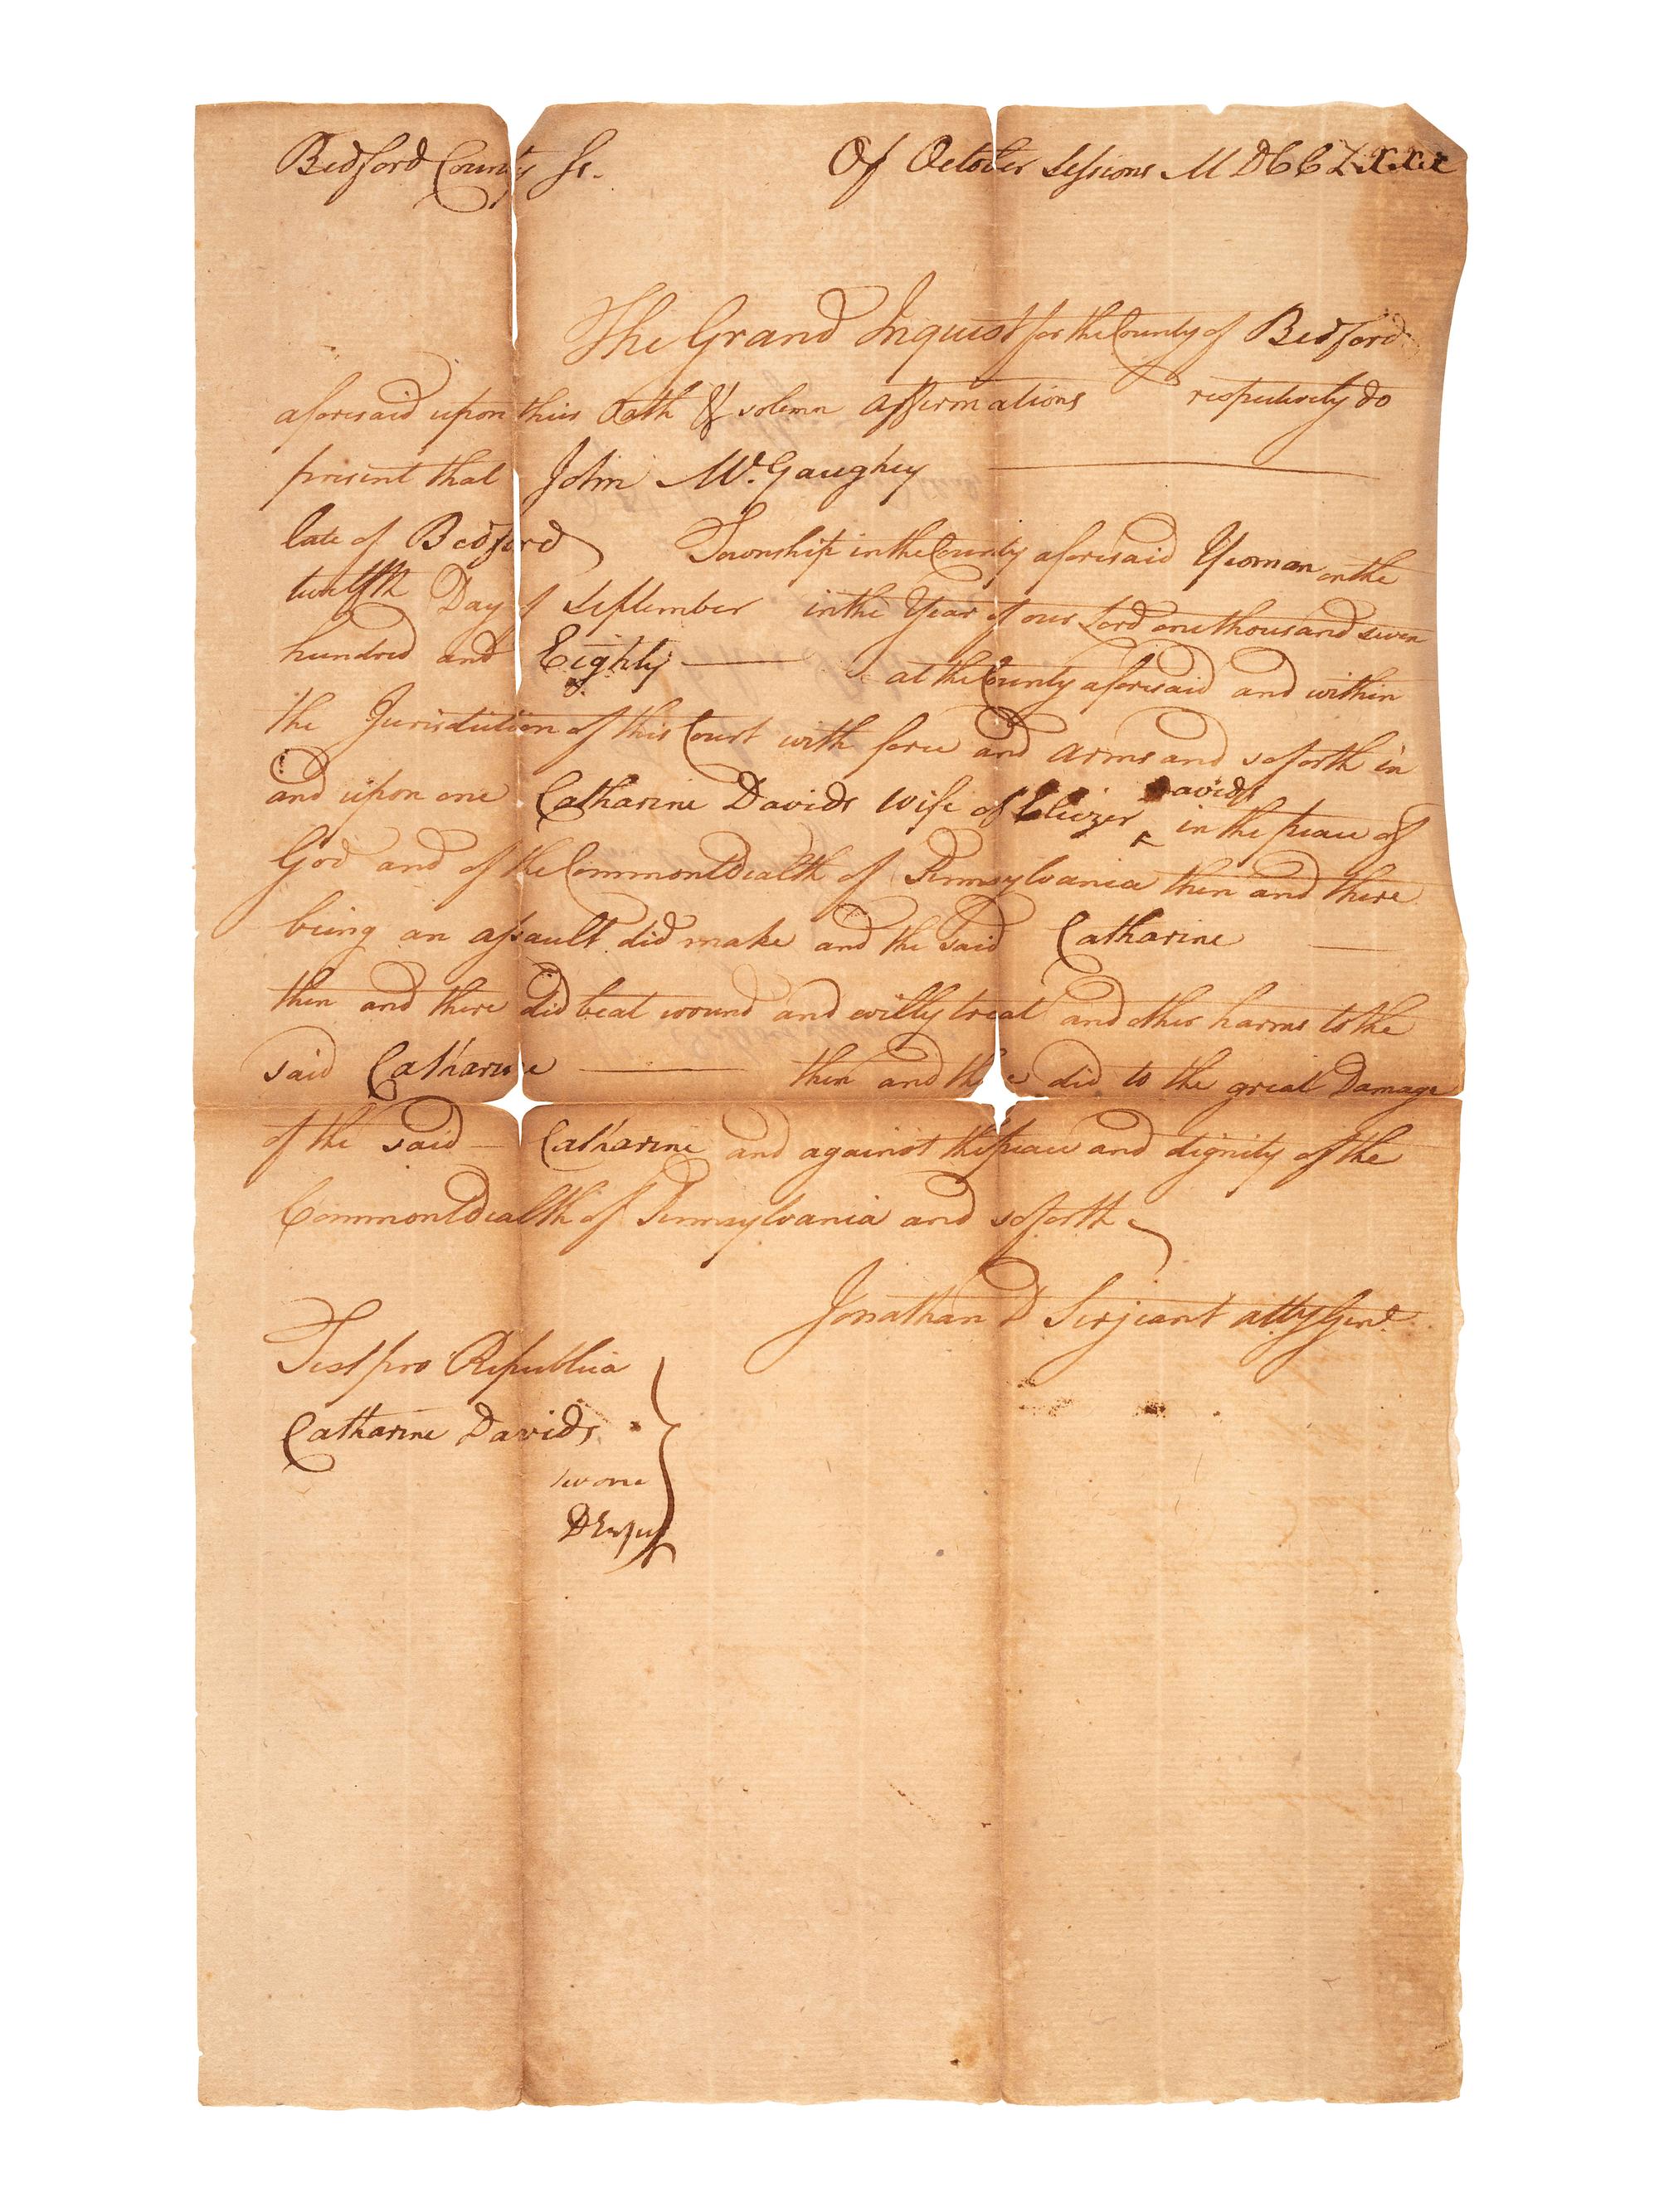 Bedford County Ss. Of October Sessions MDCCLXXX
The Grand Inquest for the County of Bedford
aforesaid upon their Oath & solemn affirmations respectively do
present that John McGaughey
late of Bedford Township in the County aforesaid Yeoman on the
twelfth Day of September in the Year of our Lord one thousand seven
hundred and Eighty at the County aforesaid and within
the Jurisdiction of this Court with force and arms and soforth in
and upon one Catharine Davids wife of Eliezer Davids in the peace of
God and of the Commonwealth of Pennsylvania then and there
being an assault did make and the said Catharine
then and there did beat wound and evilly treat and other harms to the
said Catharine then and there did to the great Damage
of the said Catharine and against the peace and dignity of the
Commonwealth of Pennsylvania and soforth
Jonathan D Serjeant atty Genl.
Test pro Republica
Catharine Davids
swone